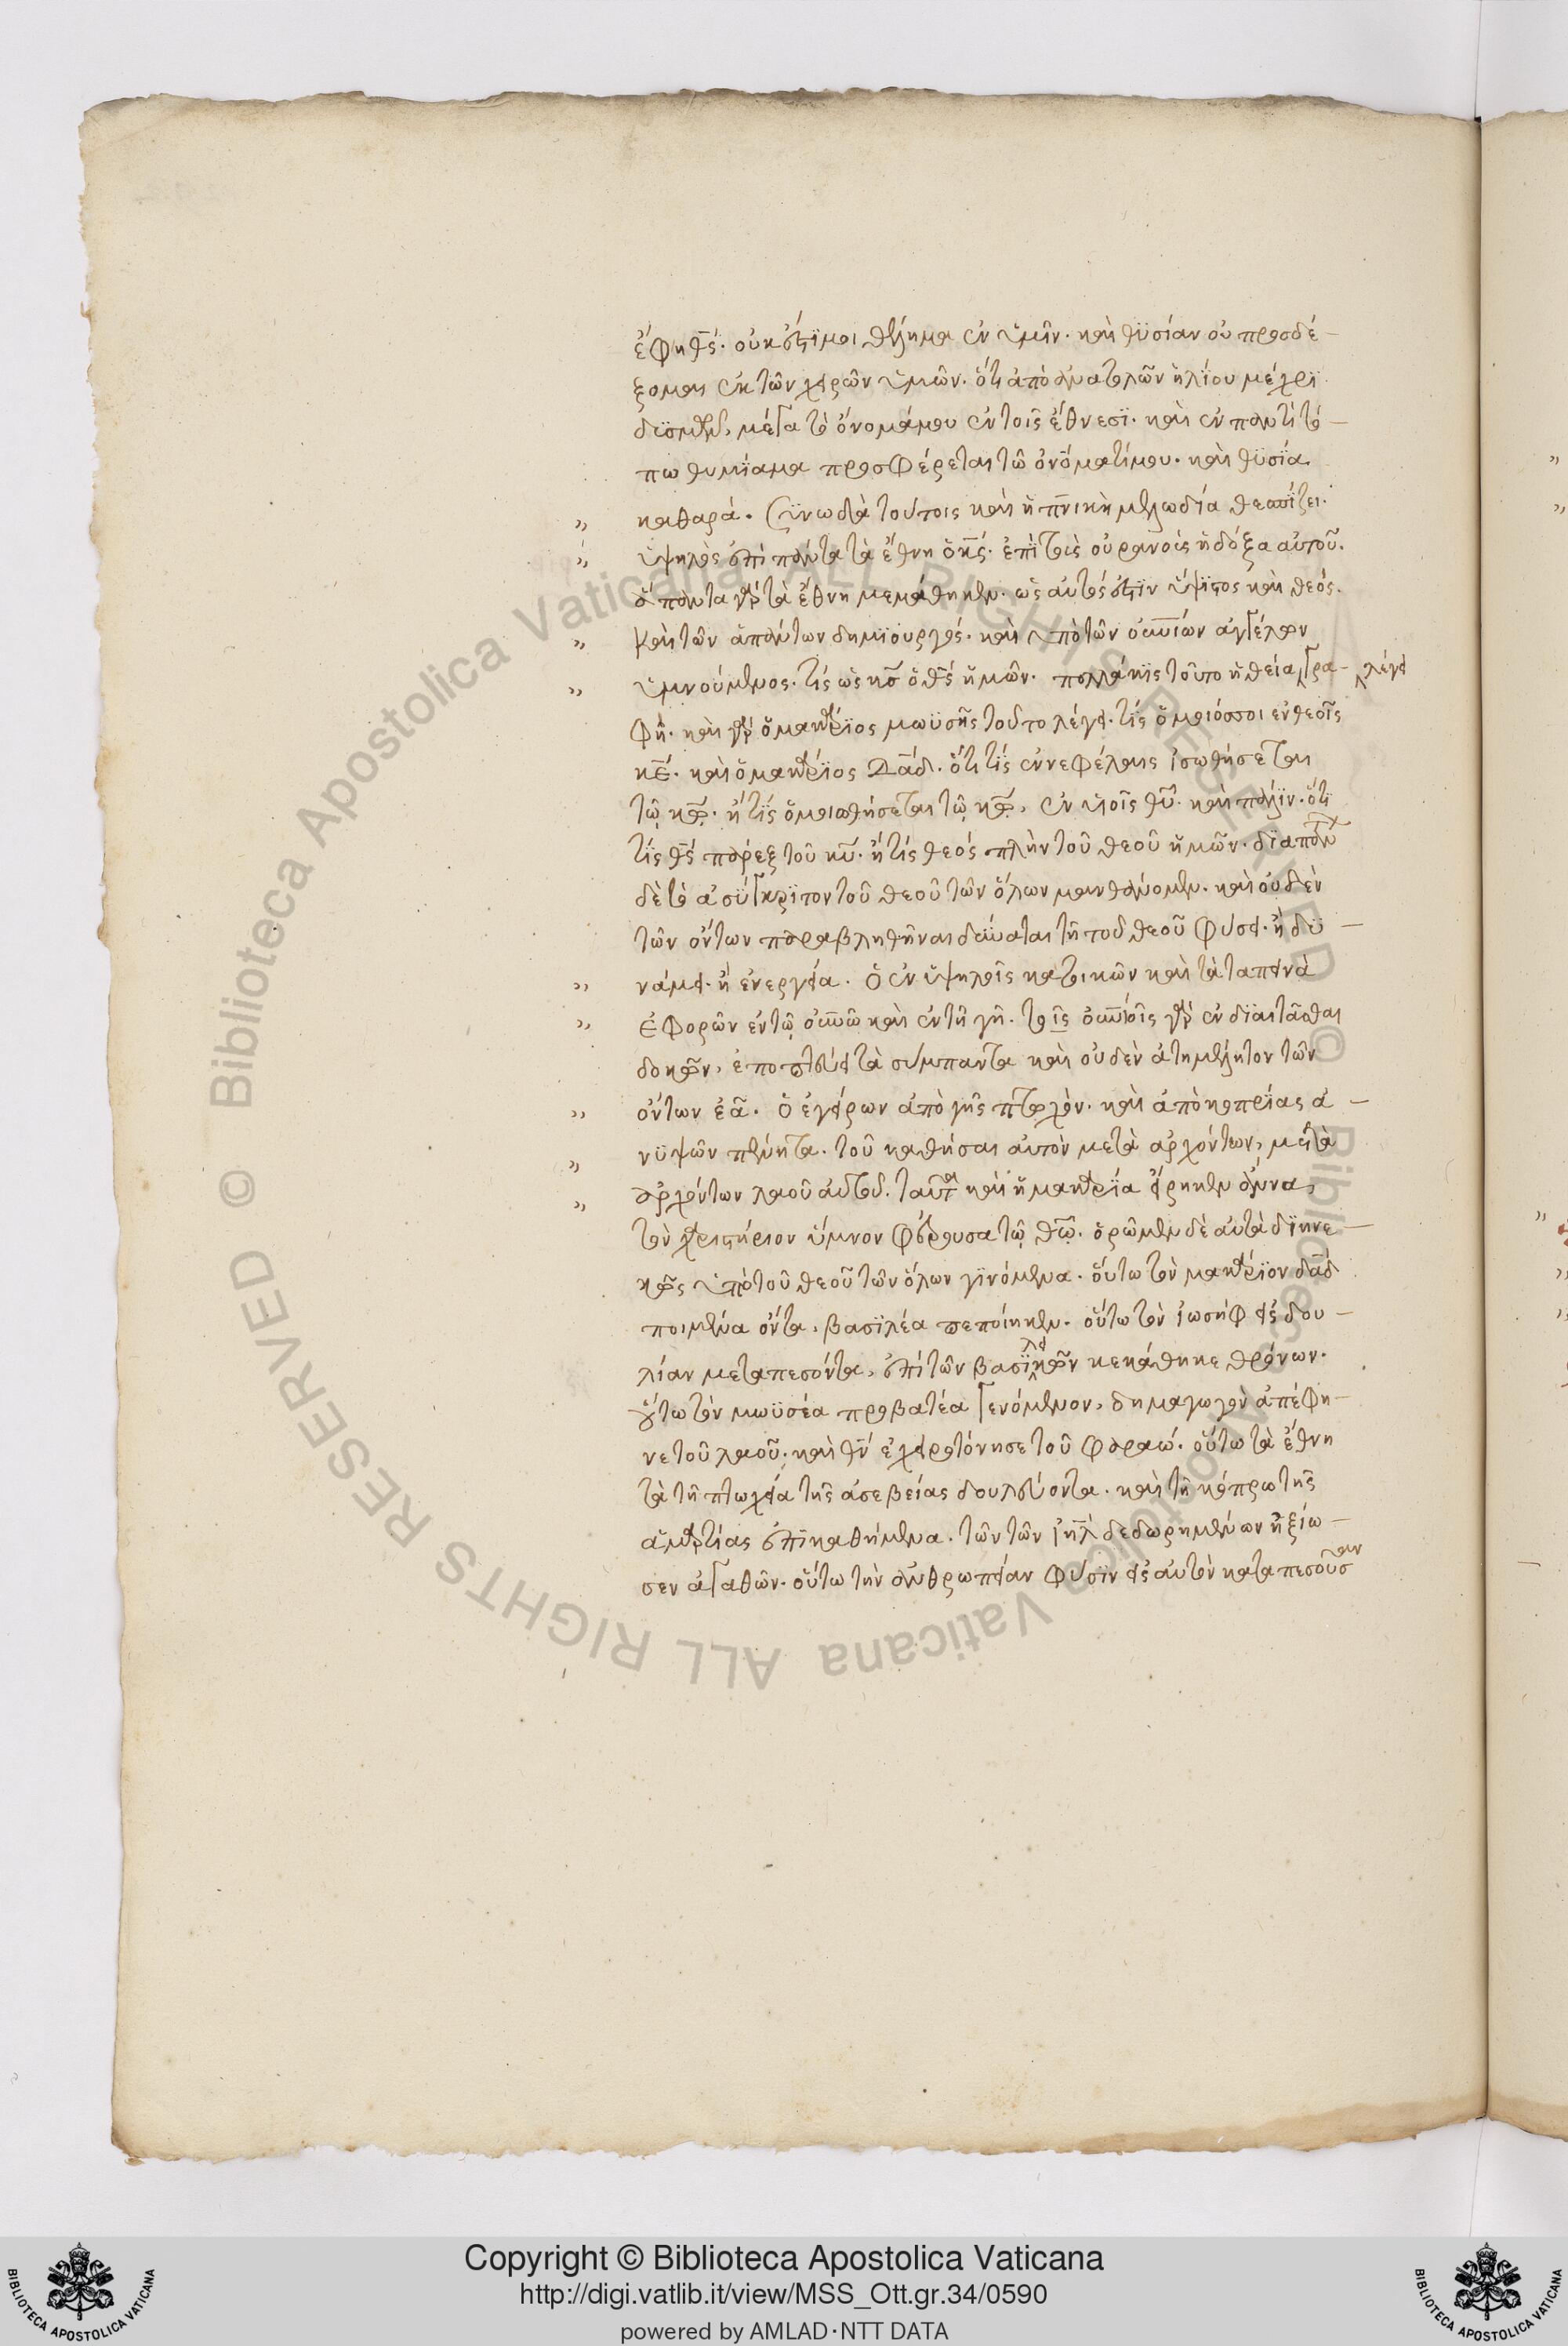 ἔφη θς̄. οὐκ ἔστι μοι θέλημα ἐν ὑμῖν. καὶ θυσίαν οὐ προσδέ-
ξομαι ἐκ τῶν χειρῶν ὑμῶν. ὅτι ἀπὸ ἀνατολῶν ἡλίου μέχρι
δυσμῶν, μέγα τὸ ὄνομά μου ἐν τοῖς ἔθνεσι. καὶ ἐν παντὶ τό-
πω θυμίαμα προσφέρεται τῶ ὀνόματί μου. καὶ θυσία
καθαρά. Συνωδὰ τούτοις καὶ ἡ πν̄ικὴ μελωδία θεσπίζει.
ὑψηλὸς ἐπὶ πάντα τὰ ἔθνη ὁ κς̄. ἐπὶ τοὺς οὐρανοὺς ἡ δόξα αὐτοῦ.
ἅπαντα γὰρ τὰ ἔθνη μεμάθηκεν. ὡς αὐτός ἐστιν ὕψιστος καὶ θεός.
καὶ τῶν ἁπάντων δημιουργός. καὶ ὑπὸ τῶν οὐν̄ίων ἀγγέλων
ὑμνούμενος. τίς ὡς κς̄ ὁ θς̄ ἡμῶν. πολλάκις τοῦτο ἡ θεία γρα- λέγει
φή. καὶ γὰρ ὁ μακάριος μωϋσῆς τοῦτο λέγει. τίς ὅμοιός σοι ἐν θεοῖς
κε̄. καὶ ὁ μακάριος Δᾱδ. ὅτι τίς ἐν νεφέλαις ἰσωθήσεται
τῶ κω̄. ἢ τίς ὁμοιωθήσεται τῶ κω̄, ἐν υἱοῖς θῡ. καὶ πάλιν. ὅτι
τίς θς̄ πάρεξ τοῦ κῡ. ἢ τίς θεός πλὴν τοῦ θεοῦ ἡμῶν. διαπαντ
δὲ τὸ ἀσύγκριτον τοῦ θεοῦ τῶν ὅλων μανθάνομεν. καὶ οὐδὲν
τῶν ὄντων παραβληθῆναι δύναται τῆ τοῦ θεοῦ φύσει. ἢ δυ-
νάμει. ἢ ἐνεργεία. Ὁ ἐν ὑψηλοῖς κατοικῶν καὶ τὰ ταπεινὰ
ἐφορῶν ἐν τῶ οὐν̄ῶ καὶ ἐν τῆ γῆ. τοῖς οὐν̄ίοις γὰρ ἐνδιαιτᾶσθαι
δοκῶν, ἐποπτεύει τὰ σύμπαντα καὶ οὐδὲν ἀτημέλητον τῶν
ὄντων ἐᾶ. Ὁ ἐγείρων ἀπὸ γῆς πτωχὸν. καὶ ἀπὸ κοπρίας ἀ-
νυψῶν πένητα. τοῦ καθῆσαι αὐτὸν μετὰ ἀρχόντων, μετὰ
ἀρχόντων λαοῦ αὐτοῦ. ταῦτα καὶ ἡ μακαρία εἴρηκεν ἄννα,
τὸν χαριστήριον ὕμνον ὑφαίνουσα τῶ θω̄. ὁρῶμεν δὲ αὐτὰ διηνε-
κῶς ὑπὸ τοῦ θεοῦ τῶν ὅλων γινόμενα. οὕτω τὸν μακάριον δᾱδ
ποιμένα ὄντα, βασιλέα πεποίηκεν. οὕτω τὸν ἰωσὴφ εἰς δου-
λίαν μεταπεσόντα, ἐπὶ τῶν βασιλεικῶν κεκάθηκε θρόνων.
οὕτω τὸν μωϋσέα προβατέα γενόμενον, δημαγωγὸν ἀπέφη-
νε τοῦ λαοῦ. καὶ θν̄ ἐχειροτόνησε τοῦ φαραώ. οὕτω τὰ ἔθνη
τὰ τῆ πτωχεία τῆς ἀσεβείας δουλεύοντα. καὶ τῆ κόπρω τῆς
ἁμαρτίας ἐπικαθήμενα. τῶν τῶν ἰη̄λ δεδωρημένων ἠξίω-
σεν ἀγαθῶν. οὕτω τὴν ἀνθρωπείαν φύσιν εἰς αὐτὸν καταπεσοῦσαν
Copyright © Biblioteca Apostolica Vaticana
http://digi.vatlib.it/view/MSS_Ott.gr.34/0590
powered by AMLAD·NTT DATA